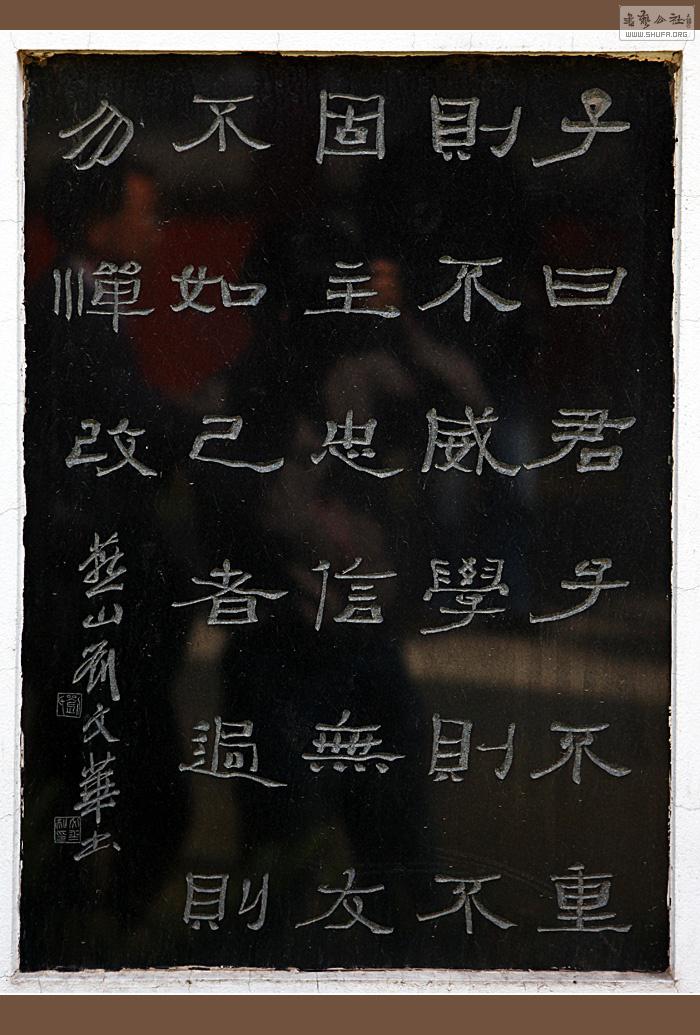 子曰君子不重
則不威學則不
固主忠信無友
不如己者過則
勿憚改
燕山劉文華書
WWW.SHUFA.ORG